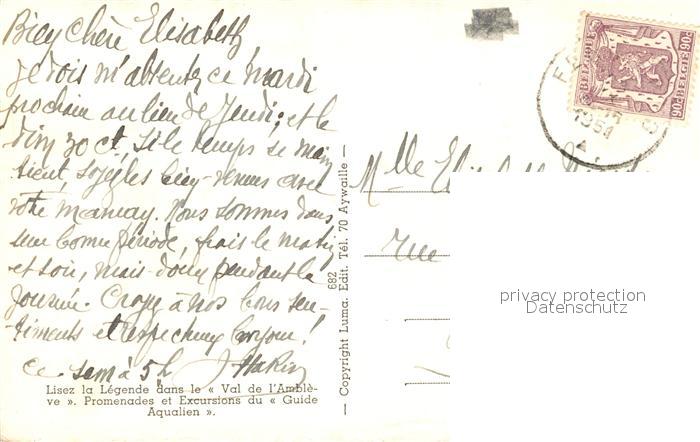 Bien chère Elisabeth
Je dois m'absenter ce mardi
prochain au lieu de Jeudi; et le
dim 30 ct, si le temps se main
tient, soyez les bien-venues avec
votre maman. Nous sommes dans
une bonne période, frais le matin
et soir, mais doux pendant la
journée. Croyez à nos bons sen-
timents et
ce sam à 5 h
Lisez la Légende dans le « Val de l'Amblè-
ve ». Promenades et Excursions du « Guide
Aqualien ».
— Copyright Luma. Edit. Tél. 70 Aywaille —
682
BELGIQUE 90c
BELGIE 90c
1954
Mlle
rue
privacy protection
Datenschutz